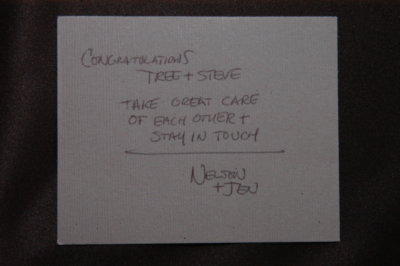 CONGRATULATIONS
TREE + STEVE
TAKE GREAT CARE
OF EACH OTHER +
STAY IN TOUCH
NELSON
+ JEN